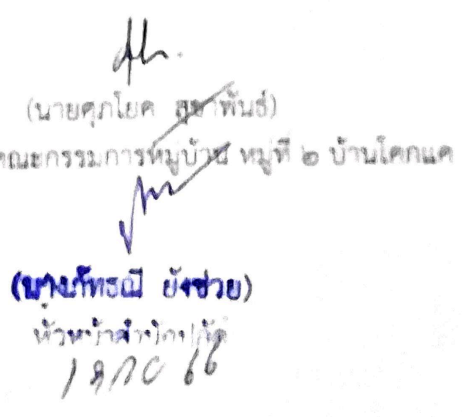 (นายศุภโยค สุขาพันธ์)
คณะกรรมการหมู่บ้าน หมู่ที่ ๒ บ้านโคกแค
(นางภัทรณี ยังช่วย)
หัวหน้าสำนักปลัด
66